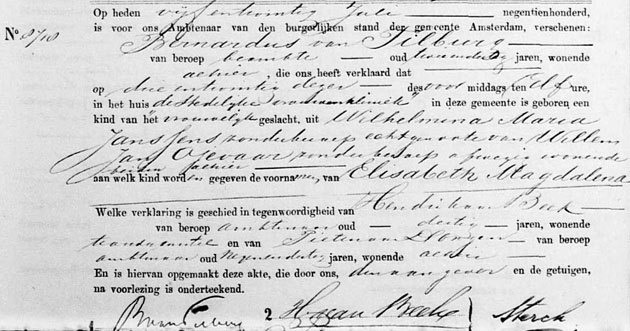 Op heden vijf en twintig Juli negentienhonderd,
No. 8718 is voor ons Ambtenaar van den burgerlijken stand der gemeente Amsterdam, verschenen:
Bernardus van Tilburg
van beroep beambte oud jaren, wonende
alhier, die ons heeft verklaard dat
op drie en twintig dezer des voor middags ten elf ure,
in het huis de Stedelijke vrouwenkliniek in deze gemeente is geboren een
kind van het vrouwelijk geslacht, uit Wilhelmina Maria
Janssens zonder beroep echtgenoote van Willem
Jan Ossevaar zonder beroep wonende
beiden alhier
aan welk kind worden gegeven de voornamen, van Elisabeth Magdalena
Welke verklaring is geschied in tegenwoordigheid van Hendrik van Beek
van beroep ambtenaar oud dertig jaren, wonende
en van Pieter van Dongen van beroep
ambtenaar oud jaren, wonende alhier
En is hiervan opgemaakt deze akte, die door ons, den aangever en de getuigen,
na voorlezing is onderteekend.
2 H van Beek Sterck